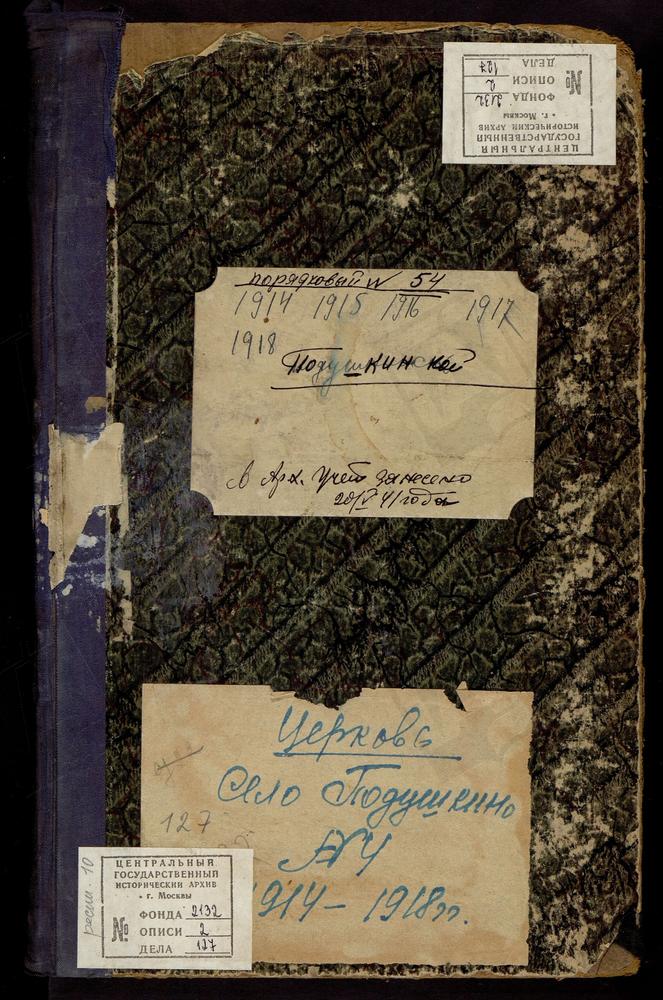 ЦЕНТРАЛЬНЫЙ
ГОСУДАРСТВЕННЫЙ
ИСТОРИЧЕСКИЙ АРХИВ
• г. Москвы
№
ФОНДА 2132
ОПИСИ 2
ДЕЛА 127
порядковый № 54
1914 1915 1916 1917
1918
Подушкинской
В Арх. учет занесено
20/V 41 года
Церковь
Село Подушкино
127
№ 4
1914 – 1918 гг.
ЦЕНТРАЛЬНЫЙ
ГОСУДАРСТВЕННЫЙ
ИСТОРИЧЕСКИЙ АРХИВ
• г. Москвы
№
ФОНДА 2132
ОПИСИ 2
ДЕЛА 127